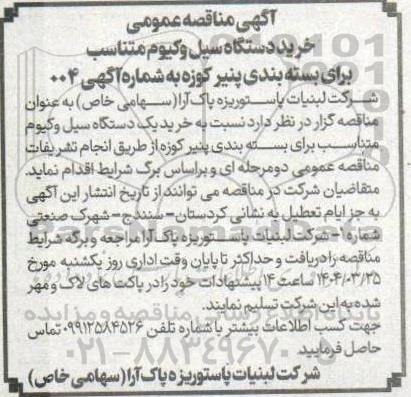 آگهی مناقصه عمومی
خرید دستگاه سیل وکیوم متناسب
برای بسته بندی پنیر کوزه به شماره آگهی ۰۰۴
شرکت لبنیات پاستوریزه پاک آرا (سهامی خاص) به عنوان
مناقصه گزار در نظر دارد نسبت به خرید یک دستگاه سیل وکیوم
متناسب برای بسته بندی پنیر کوزه از طریق انجام تشریفات
مناقصه عمومی دو مرحله ای و براساس برگ شرایط اقدام نماید.
متقاضیان شرکت در مناقصه می توانند از تاریخ انتشار این آگهی
به جز ایام تعطیل به نشانی کردستان- سنندج- شهرک صنعتی
شماره ۱- شرکت لبنیات پاستوریزه پاک آرا مراجعه و برگه شرایط
مناقصه را دریافت و حداکثر تا پایان وقت اداری روز یکشنبه مورخ
۱۴۰۴/۰۳/۲۵ ساعت ۱۴ پیشنهادات خود را در پاکت های لاک و مهر
شده به این شرکت تسلیم نمایند.
جهت کسب اطلاعات بیشتر با شماره تلفن ۰۹۹۱۲۵۸۴۵۲۶ تماس
حاصل فرمایید
شرکت لبنیات پاستوریزه پاک آرا (سهامی خاص)
۰۲۱-۸۸۳۴۹۶۷۰